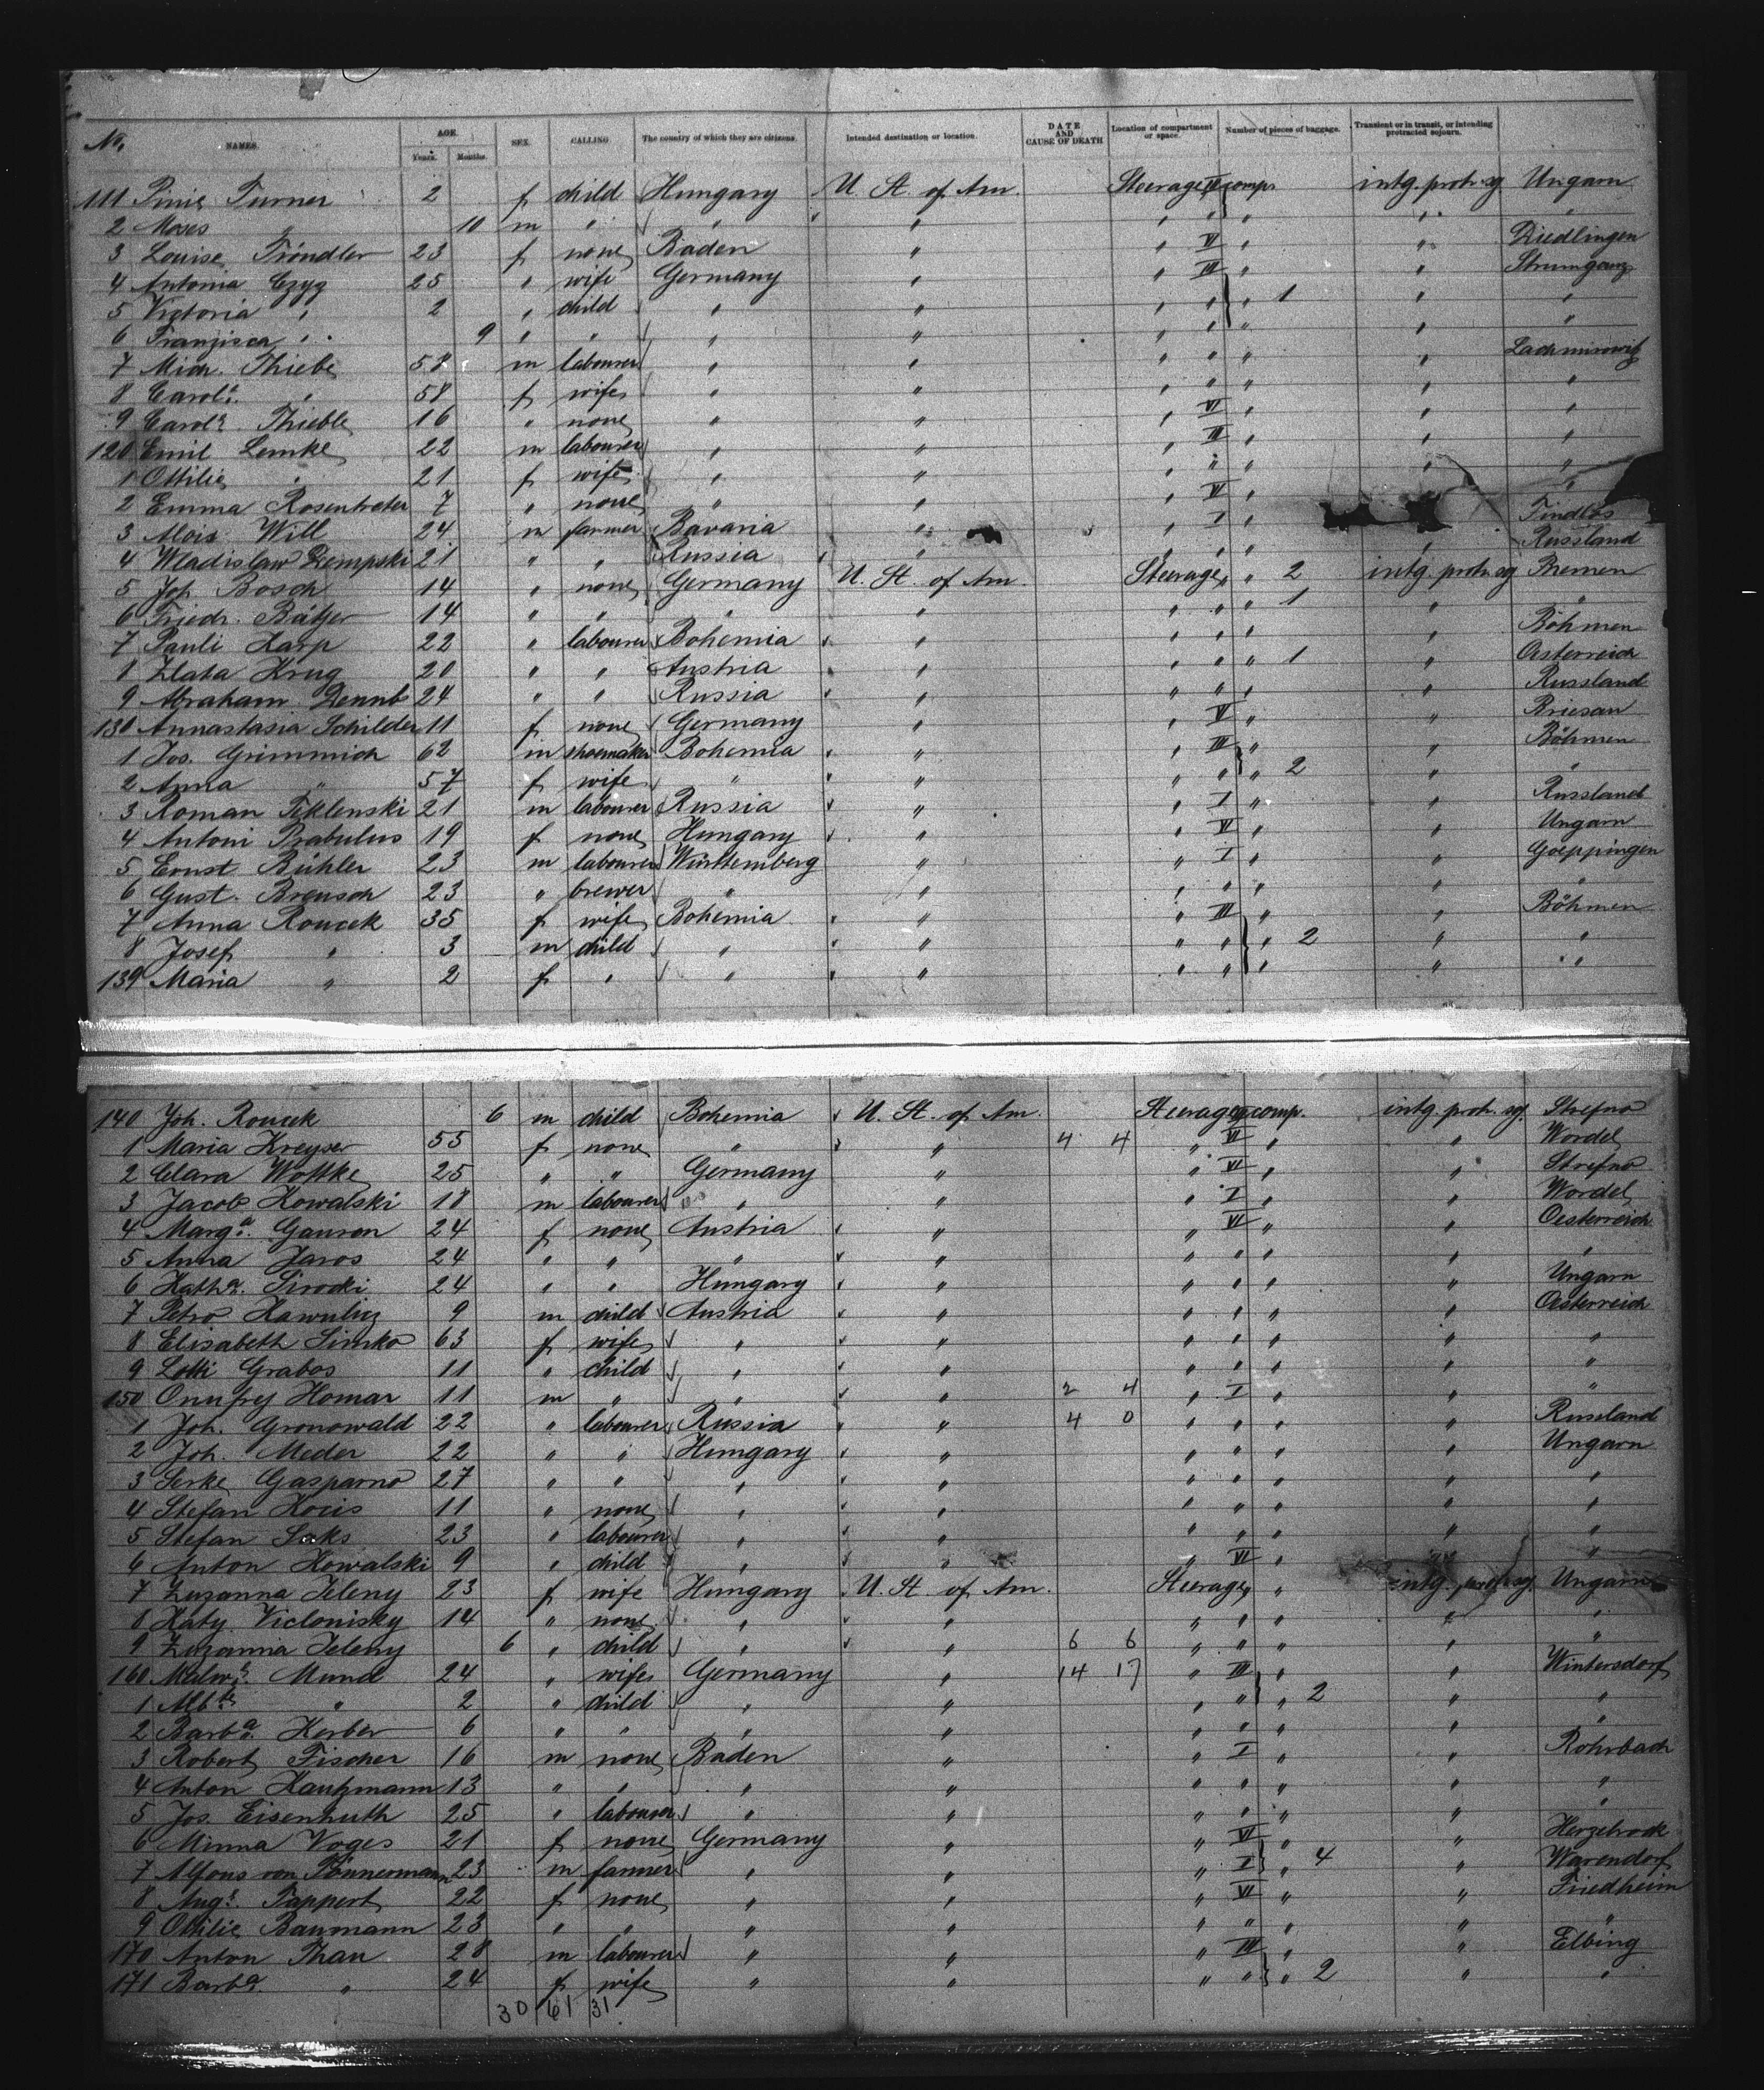 No. NAMES. AGE. Years. Months. SEX. CALLING The country of which they are citizens. Intended destination or location. DATE AND CAUSE OF DEATH Location of compartment or space. Number of pieces of baggage. Transient or in transit, or intending protracted sojourn.
111 Pinie Turner 2 f child Hungary U. St. of Am. Steerage II comp. intg. protr. sg. Ungarn
2 Moses " 10 m " " " " " " " "
3 Louise Tröndler 23 f none Baden " " VI " " Riedlingen
4 Antonia Czyz 25 " wife Germany " " III " "
5 Victoria " 2 " child " " " " " 1 " "
6 Franzisca " 9 " " " " " " " " "
7 Mich. Thiebe 58 m labourer " " " " " "
8 Carola. " 58 f wife " " " " " " "
9 Carola. Thieble 16 " none " " " VI " " "
120 Emil Lemke 22 m labourer " " " III " " "
1 Ottilie " 21 f wife " " " " " " "
2 Emma Rosentreter 7 " none " " " VI " "
3 Alois Will 24 m farmer Bavaria " " I " Findlos
4 Wladislaw Dempski 21 " " Russia " " " " " Russland
5 Joh. Bosch 14 " none Germany U. St. of Am. Steerage " " 2 intg. protr. sg. Bremen
6 Friedr. Bätjer 14 " " " " " " " 1 " "
7 Pauli Karp 22 " labourer Bohemia " " " " " Böhmen
8 Zlata Krug 20 " " Austria " " " " 1 " Oesterreich
9 Abraham Dennb 24 " " Russia " " " " " Russland
130 Annastasia Schilder 11 f none Germany " " VI " " Briesan
1 Jos. Grimmich 62 m shoemaker Bohemia " " III " " Böhmen
2 Anna " 57 f wife " " " " " 2 " "
3 Roman Teklenski 21 m labourer Russia " " I " " Russland
4 Antoni Prabulus 19 f none Hungary " " VI " " Ungarn
5 Ernst Bühler 23 m labourer Württemberg " " I " " Goeppingen
6 Gust. Breusch 23 " brewer " " " " " " "
7 Anna Roucek 35 f wife Bohemia " " III " " Böhmen
8 Josef " 3 m child " " " " " 2 " "
139 Maria " 2 f " " " " " " " "
140 Joh. Roucek 6 m child Bohemia U. St. of Am. Steerage comp. intg. protr. sg. Strefno
1 Maria Kreyser 55 f none " " 4 4 " VI " " Wordel
2 Clara Wottke 25 " " Germany " " VI " " Strefno
3 Jacob Kowalski 18 m labourer " " " I " " Wordel
4 Marga. Gauron 24 f none Austria " " VI " " Oesterreich
5 Anna Jaros 24 " " " " " " " " "
6 Katha. Sirocki 24 " " Hungary " " " " " Ungarn
7 Petro Hawuliz 9 m child Austria " " " " " Oesterreich
8 Elisabeth Simko 63 f wife " " " " " " "
9 Lotti Grabos 11 " child " " " " " " "
150 Onufrej Homar 11 m " " " 2 4 " I " " "
1 Joh. Gronowald 22 " labourer Russia " 4 0 " " " " Russland
2 Joh. Meder 22 " " Hungary " " " " " Ungarn
3 Serke Gasparno 27 " " " " " " " " "
4 Stefan Kocis 11 " none " " " " " " "
5 Stefan Saks 23 " labourer " " " " " " "
6 Anton Kowalski 9 " child " " " VI " " "
7 Zuzanna Teleny 23 f wife Hungary U. St. of Am. Steerage " intg. protr. sg. Ungarn
8 Katy Viclonisky 14 " none " " " " " " "
9 Zuzanna Teleny 6 " child " " 6 6 " " " " "
160 Malwa. Mund 24 " wife Germany " 14 17 " III " " Wintersdorf
1 Albte " 2 " child " " " " " 2 " "
2 Barba. Kerber 6 " " " " " " " " "
3 Robert Fischer 16 m none Baden " " I " " Rohrbach
4 Anton Kautzmann 13 " " " " " " " " "
5 Jos. Eisenhuth 25 " labourer " " " " " " "
6 Minna Voges 21 f none Germany " " VI " " Herzebrock
7 Alfons von Bönnermann 23 m farmer " " " I " 4 " Warendorf
8 Auga. Tappert 22 f none " " " VI " " Friedheim
9 Ottilie Baumann 23 " " " " " " " " "
170 Anton Thau 28 m labourer " " " III " " Elbing
171 Barba. " 24 f wife " " " " " 2 " "
30 61 31